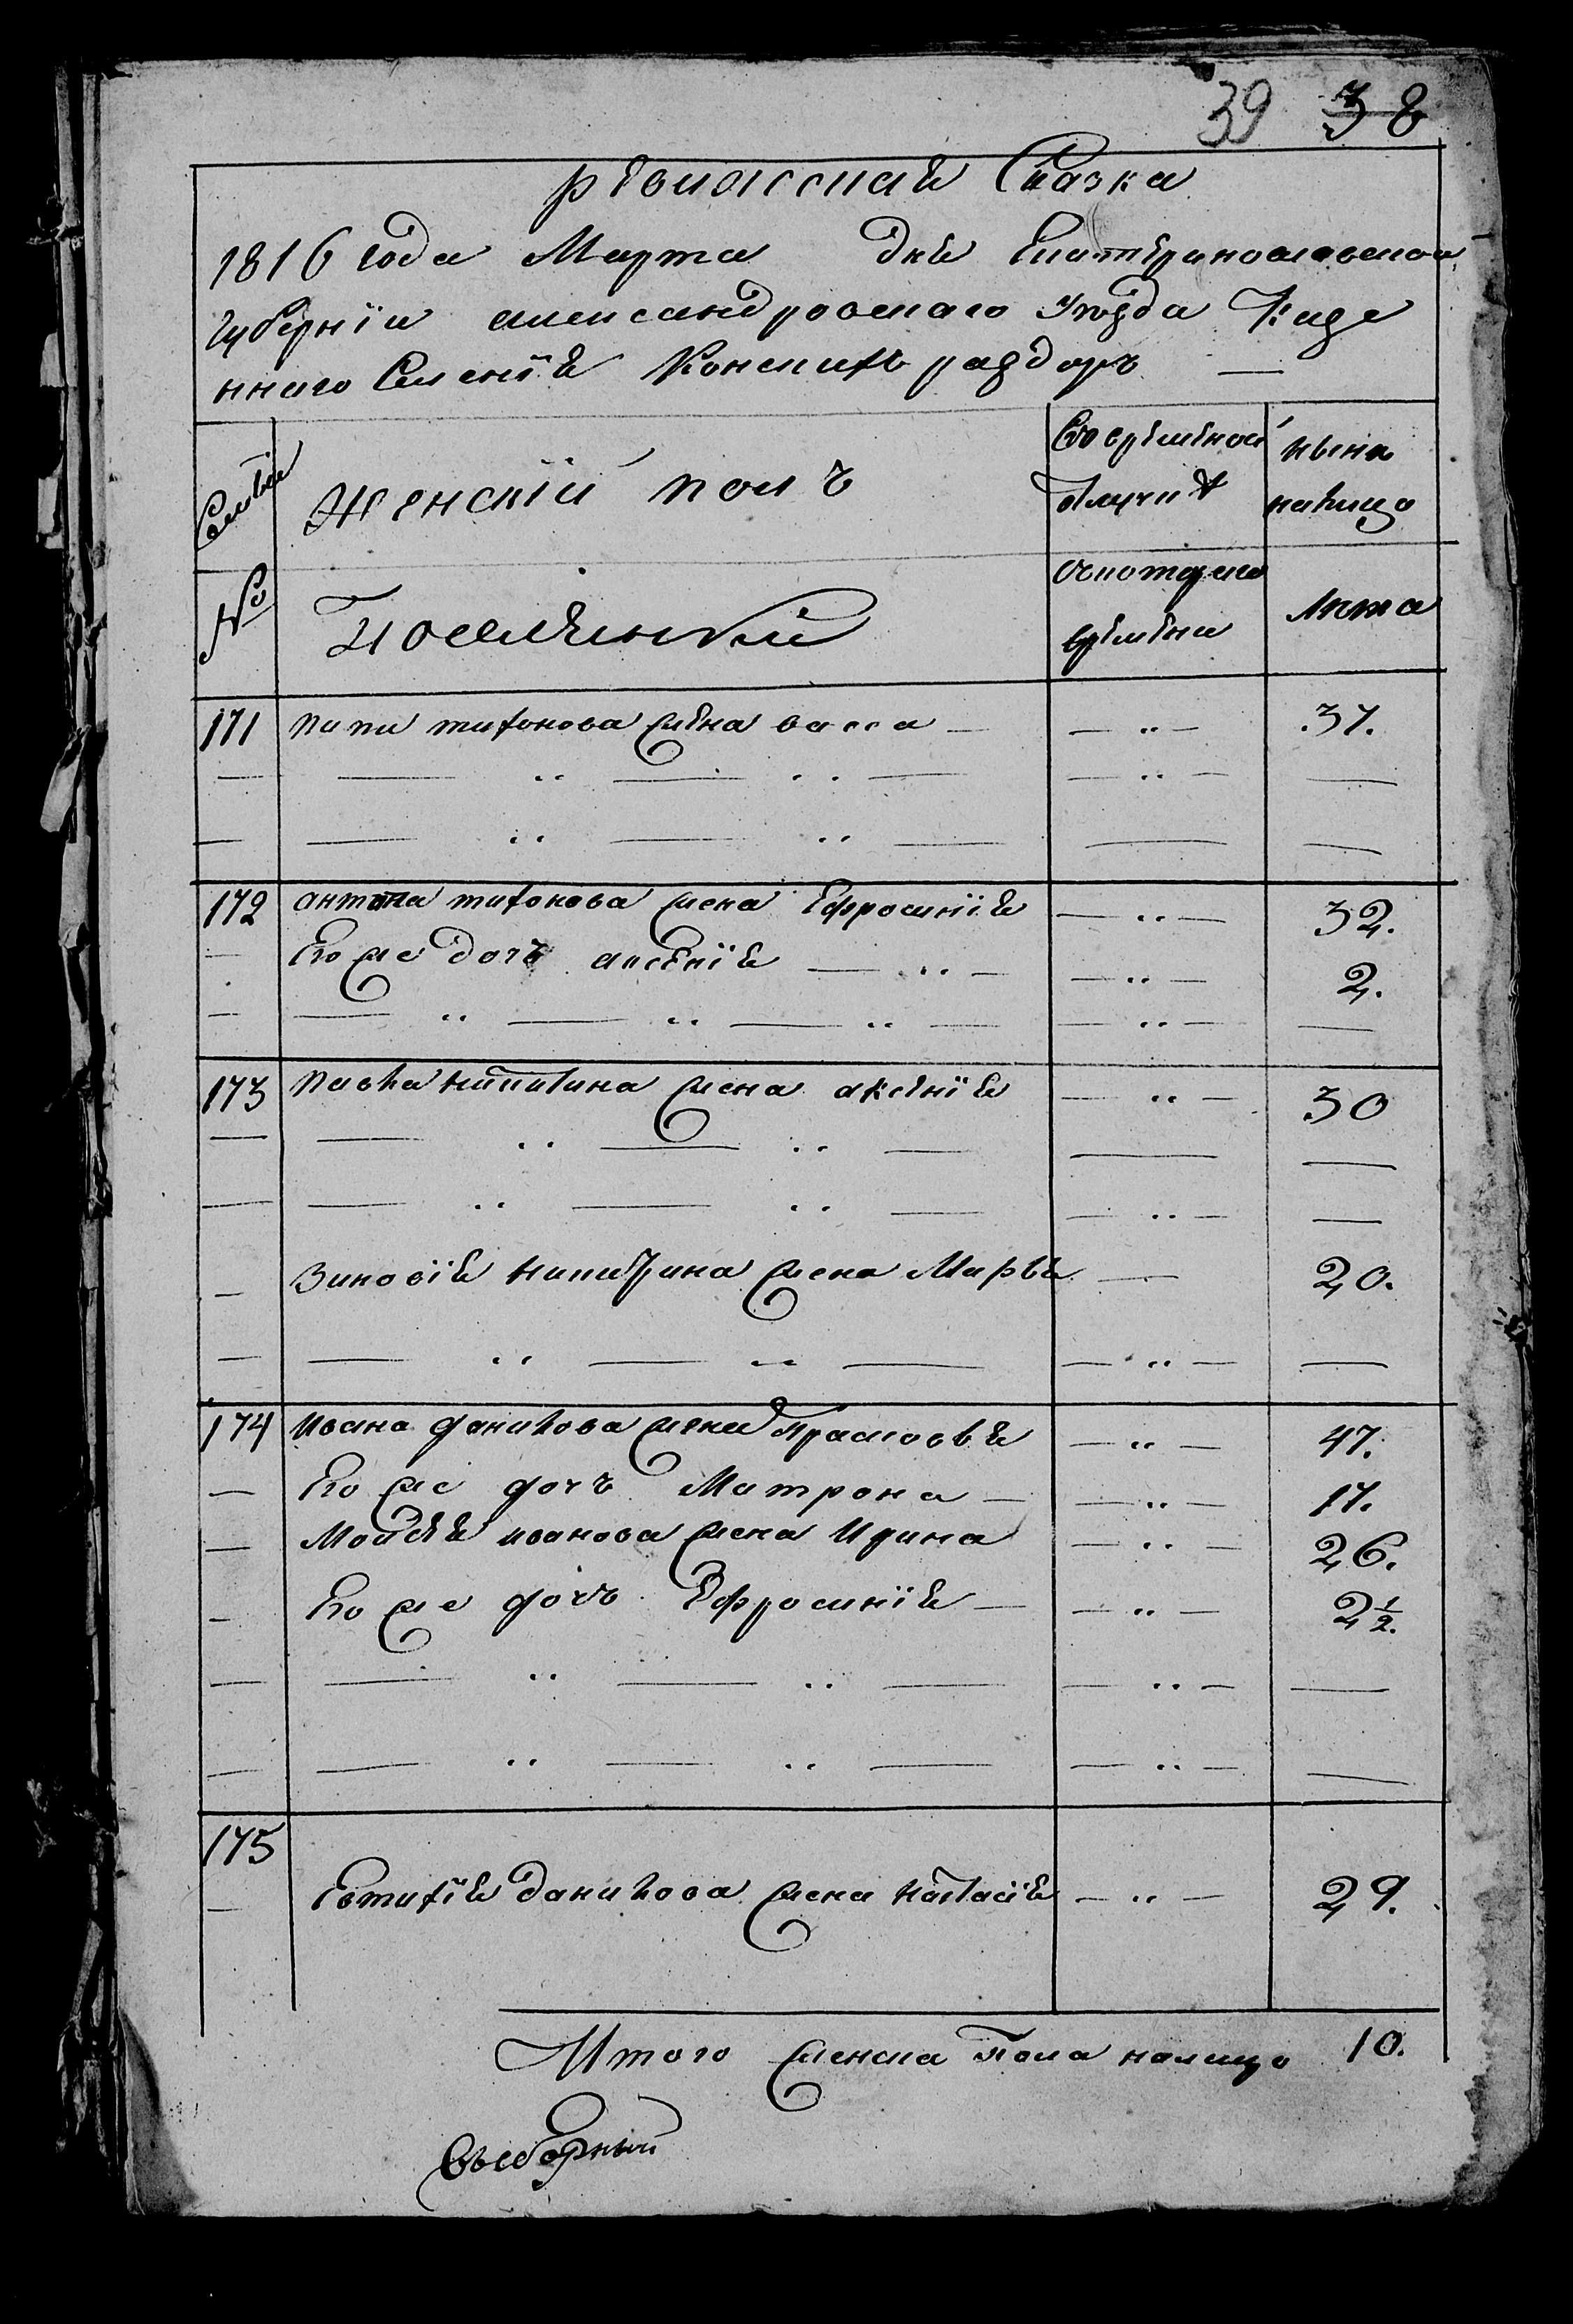 39 38
ревижская Сказка
1816 года Марта дня Екатеринославской
губернїи александровскаго уезда Казе
ннаго Селенїя Конскихъ раздоръ
Семьи
женскїй полъ
Во временной
отлучкѣ
ныне
налицо
№
Поселянкїй
Съ котораго
времени
Лета
171 папа тихонова жена васса 37.
172 антона тихонова жена Ефросинїя 32.
Его же дочь аксенїя 2.
173 павла никитина жена аксенїя 30
Зиновїя никитина жена Марья 20.
174 ивана данилова жена Прасковья 47.
Его же дочь Матрона 17.
Мойсея иванова жена Ирина 26.
Его же дочь Ефросинїя 2 1/2.
175
Евтихїя данилова жена настасїя 29.
Итого женска пола налицо 10.
Выборный